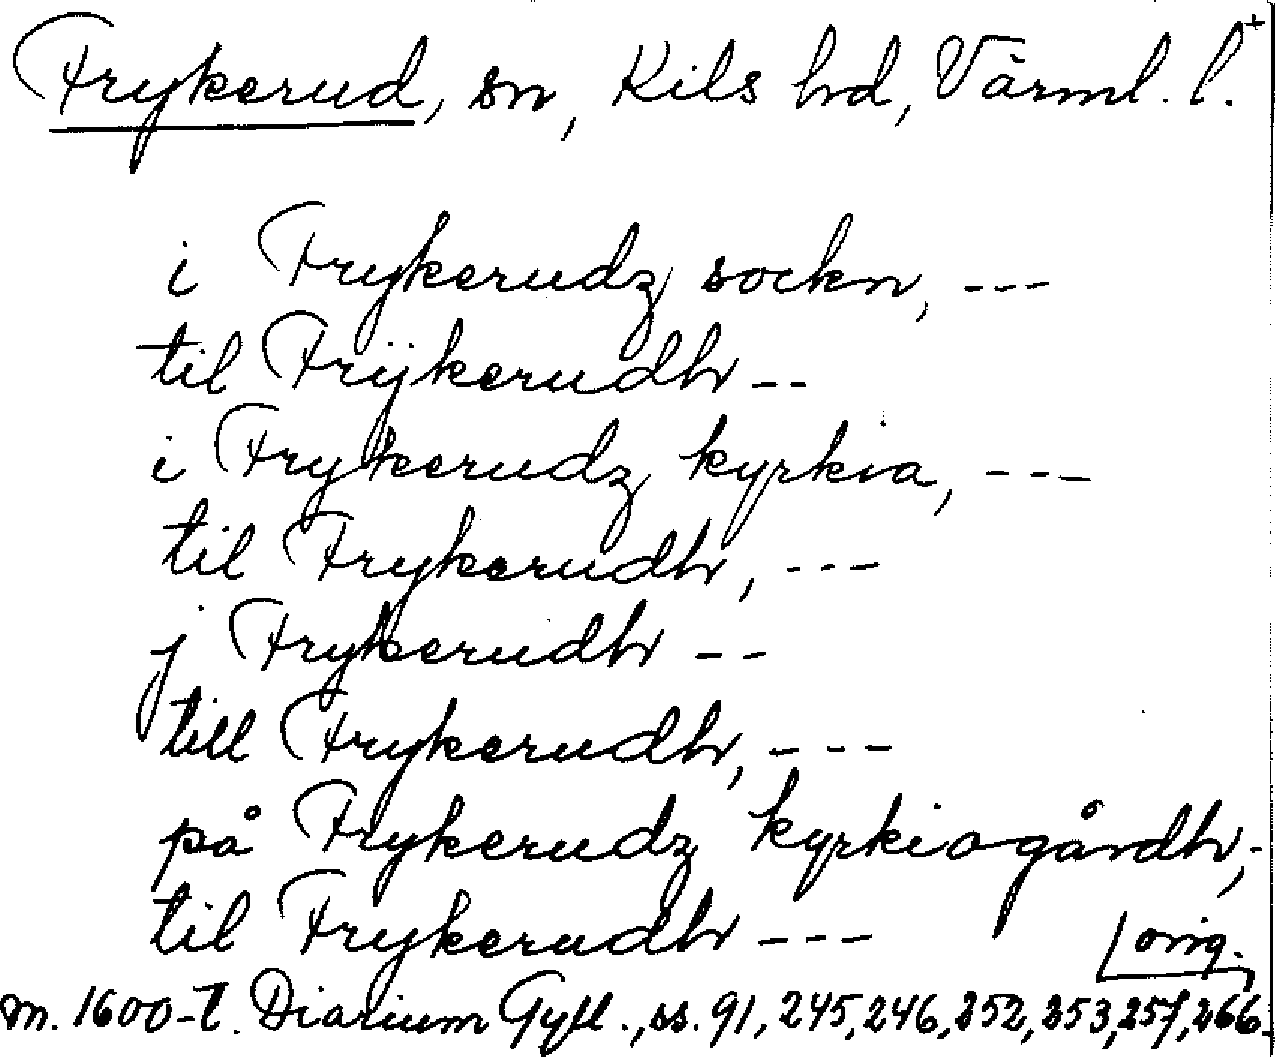 Frykerud, sn, Kils hd, Värml. l.+
i Frykerudz sockn, ---
til Frÿkerudh --
i Frykerudz kyrkia, ---
til Frykerudh, ---
j Frykerudh --
till Frykerudh, ---
på Frykerudz kyrkiogårdh, -
til Frykerudh ---
orig.
m. 1600-t. Diarium Gyll., ss. 91, 245, 246, 252, 253, 257, 266.